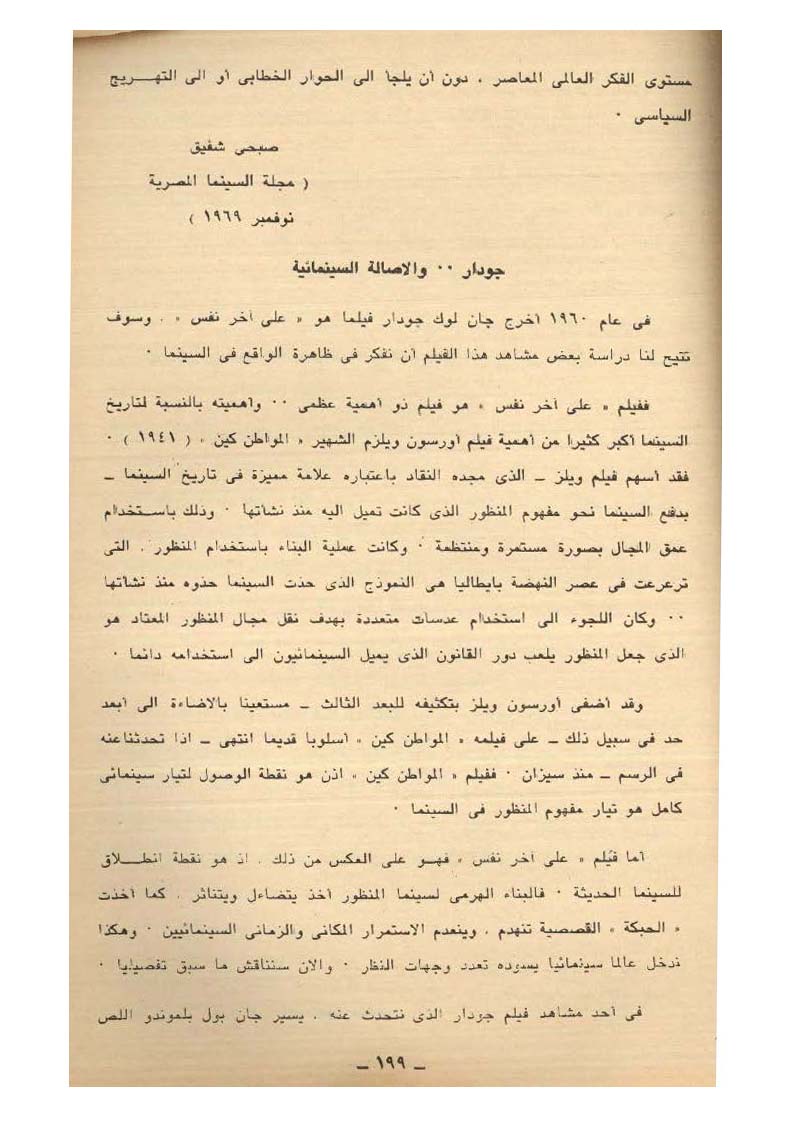 مستوى الفكر العالمى المعاصر ، دون أن يلجأ الى الحوار الخطابى أو الى التهـــريج
السياسى ٠
صبحى شفيق
( مجلة السينما المصرية
نوفمبر ١٩٦٩ )
جودار ٠٠ والاصالة السينمائية
فى عام ١٩٦٠ أخرج جان لوك جودار فيلما هو « على آخر نفس » . وسوف
تتيح لنا دراسة بعض مشاهد هذا الفيلم أن نفكر فى ظاهرة الواقع فى السينما ٠
ففيلم « على آخر نفس » هو فيلم ذو أهمية عظمى ٠٠ وأهميته بالنسبة لتاريخ
السينما أكبر كثيرا من أهمية فيلم أورسون ويلزم الشهير « المواطن كين » ( ١٩٤١ ) ٠
فقد أسهم فيلم ويلز ــ الذى مجده النقاد باعتباره علامة مميزة فى تاريخ السينما ــ
بدفع السينما نحو مفهوم المنظور الذى كانت تميل اليه منذ نشأتها ٠ وذلك باســتخدام
عمق المجال بصورة مستمرة ومنتظمة ٠ وكانت عملية البناء باستخدام المنظور ، التى
ترعرعت فى عصر النهضة بايطاليا هى النموذج الذى حذت السينما حذوه منذ نشأتها
٠٠ وكان اللجوء الى استخدام عدسات متعددة بهدف نقل مجال المنظور المعتاد هو
الذى جعل المنظور يلعب دور القانون الذى يميل السينمائيون الى استخدامه دائما ٠
وقد أضفى أورسون ويلز بتكثيفه للبعد الثالث ــ مستعينا بالاضاءة الى أبعد
حد فى سبيل ذلك ــ على فيلمه « المواطن كين » أسلوبا قديما انتهى ــ اذا تحدثنا عنه
فى الرسم ــ منذ سيزان ٠ ففيلم « المواطن كين » اذن هو نقطة الوصول لتيار سينمائى
كامل هو تيار مفهوم المنظور فى السينما ٠
أما فيلم « على آخر نفس » فهـو على العكس من ذلك ، اذ هو نقطة انطــلاق
للسينما الحديثة ٠ فالبناء الهرمى لسينما المنظور أخذ يتضاءل ويتناثر ، كما أخذت
« الحبكة » القصصية تنهدم ، وينعدم الاستمرار المكانى والزمانى السينمائيين ٠ وهكذا
ندخل عالما سينمائيا يسوده تعدد وجهات النظر ٠ والان سنناقش ما سبق تفصيليا ٠
فى أحد مشاهد فيلم جودار الذى نتحدث عنه ، يسير جان بول بلموندو اللص
ــ ١٩٩ ــ